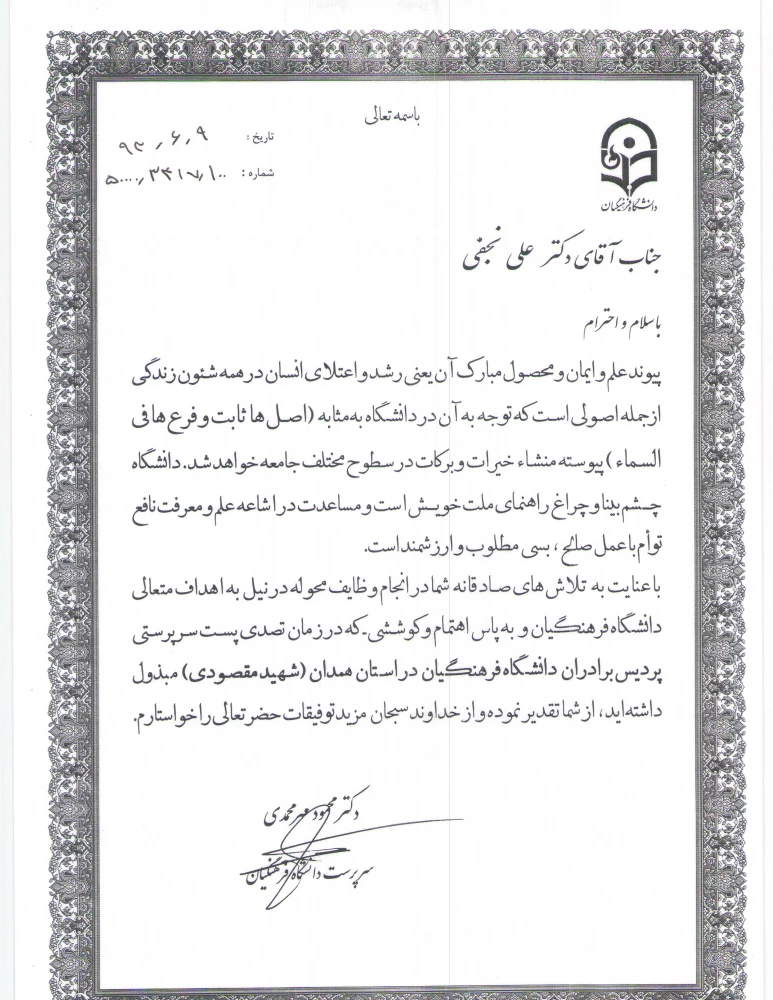 باسمه تعالی
تاریخ : ۹۳٫۶٫۹
شماره : ۵۰۰۰۰٫۳۴۱۷٫۱۰۰
دانشگاه فرهنگیان
جناب آقای دکتر علی نجفی
باسلام و احترام
پیوند علم و ایمان و محصول مبارک آن یعنی رشد و اعتلای انسان در همه شئون زندگی
از جمله اصولی است که توجه به آن در دانشگاه به مثابه (اصل ها ثابت و فرع ها فی
السماء) پیوسته منشاء خیرات و برکات در سطوح مختلف جامعه خواهد شد. دانشگاه
چشم بینا و چراغ راهنمای ملت خویش است و مساعدت در اشاعه علم و معرفت نافع
توأم با عمل صالح ، بسی مطلوب و ارزشمند است.
با عنایت به تلاش های صادقانه شما در انجام وظایف محوله در نیل به اهداف متعالی
دانشگاه فرهنگیان و به پاس اهتمام و کوششی که در زمان تصدی پست سرپرستی
پردیس برادران دانشگاه فرهنگیان در استان همدان (شهید مقصودی) مبذول
داشته اید، از شما تقدیر نموده و از خداوند سبحان مزید توفیقات حضرتعالی را خواستارم.
دکتر محمود مهرمحمدی
سرپرست دانشگاه فرهنگیان